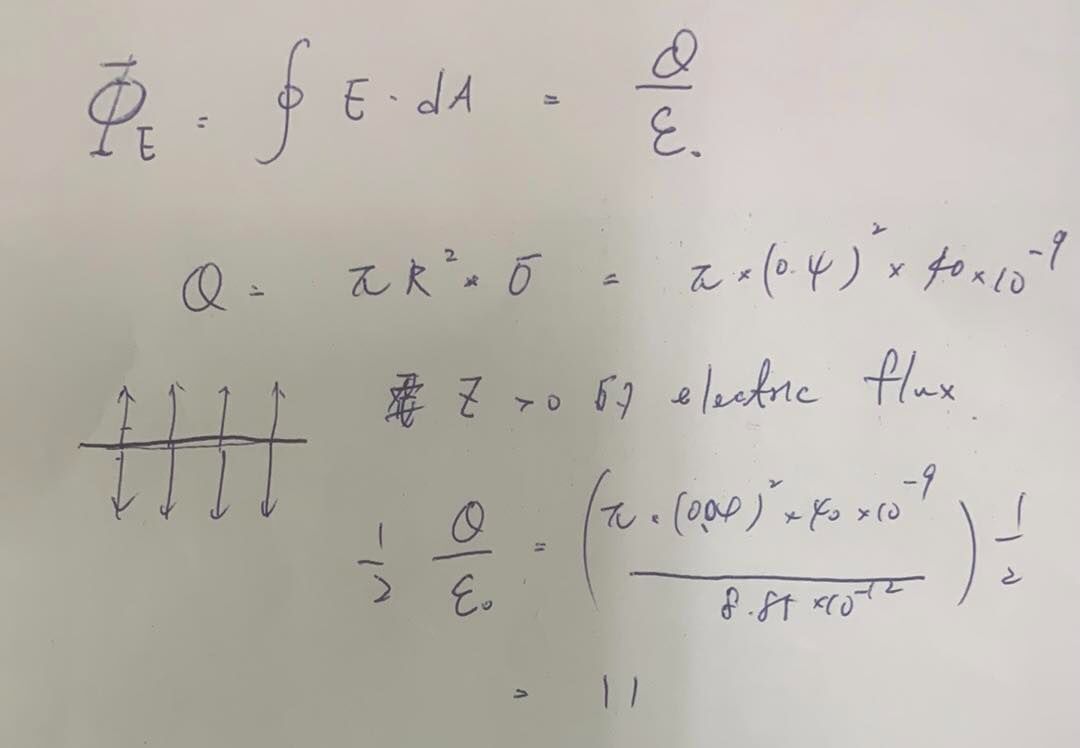 Φ_E = ∮ E · dA = Q / ε₀
Q = πR² × σ = π × (0.4)² × 40 × 10⁻⁹
Z > 0 electric flux.
1/2 Q/ε₀ = (π × (0.04)² × 40 × 10⁻⁹ / 8.85 × 10⁻¹²) 1/2
= 11